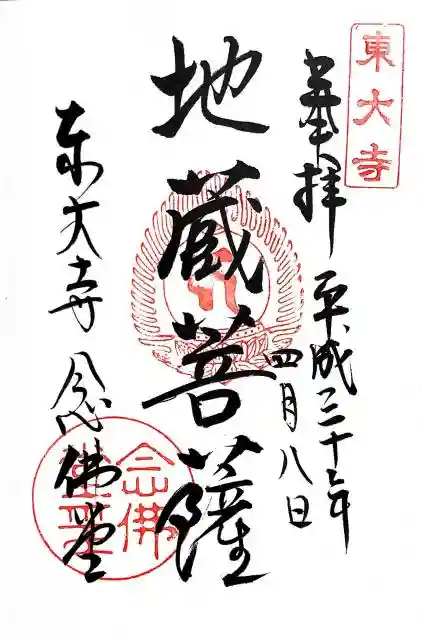 東大寺
奉拝 平成三十年
四月八日
地蔵菩薩
東大寺 念佛堂
念佛